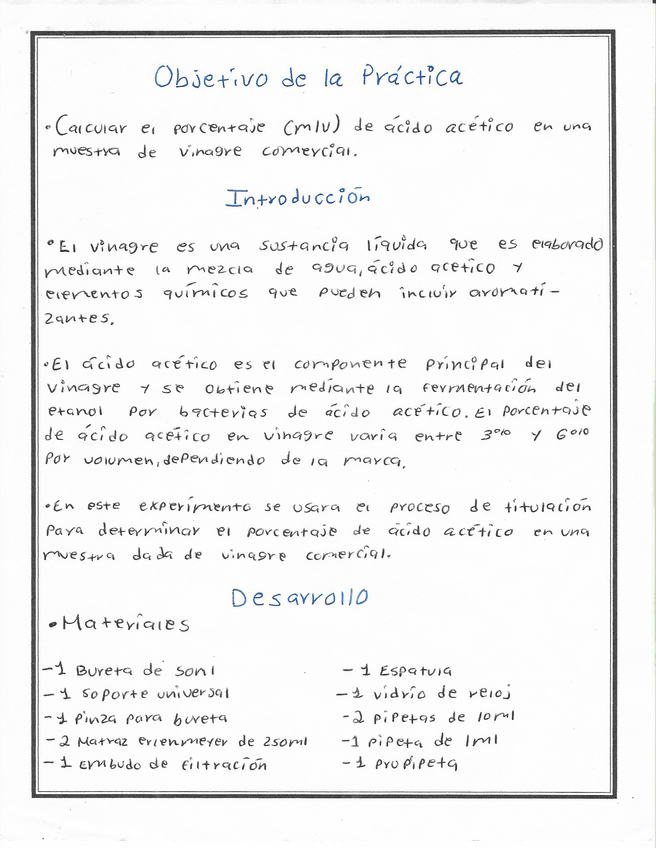 Objetivo de la Práctica
•Calcular el porcentaje (m/v) de ácido acético en una
muestra de vinagre comercial.
Introducción
•El vinagre es una sustancia líquida que es elaborado
mediante la mezcla de agua, ácido acetico y
elementos químicos que pueden incluir aromati-
zantes.
•El ácido acético es el componente principal del
vinagre y se obtiene mediante la fermentación del
etanol por bacterias de ácido acético. El porcentaje
de ácido acético en vinagre varía entre 3% y 6%
por volumen, dependiendo de la marca.
•En este experimento se usara el proceso de titulación
para determinar el porcentaje de ácido acético en una
muestra dada de vinagre comercial.
Desarrollo
•Materiales
-1 Bureta de 50ml
-1 Soporte universal
-1 Pinza para bureta
-2 Matraz erlenmeyer de 250ml
-1 embudo de filtración
-1 Espatula
-1 vidrio de reloj
-2 pipetas de 10ml
-1 pipeta de 1ml
-1 propipeta